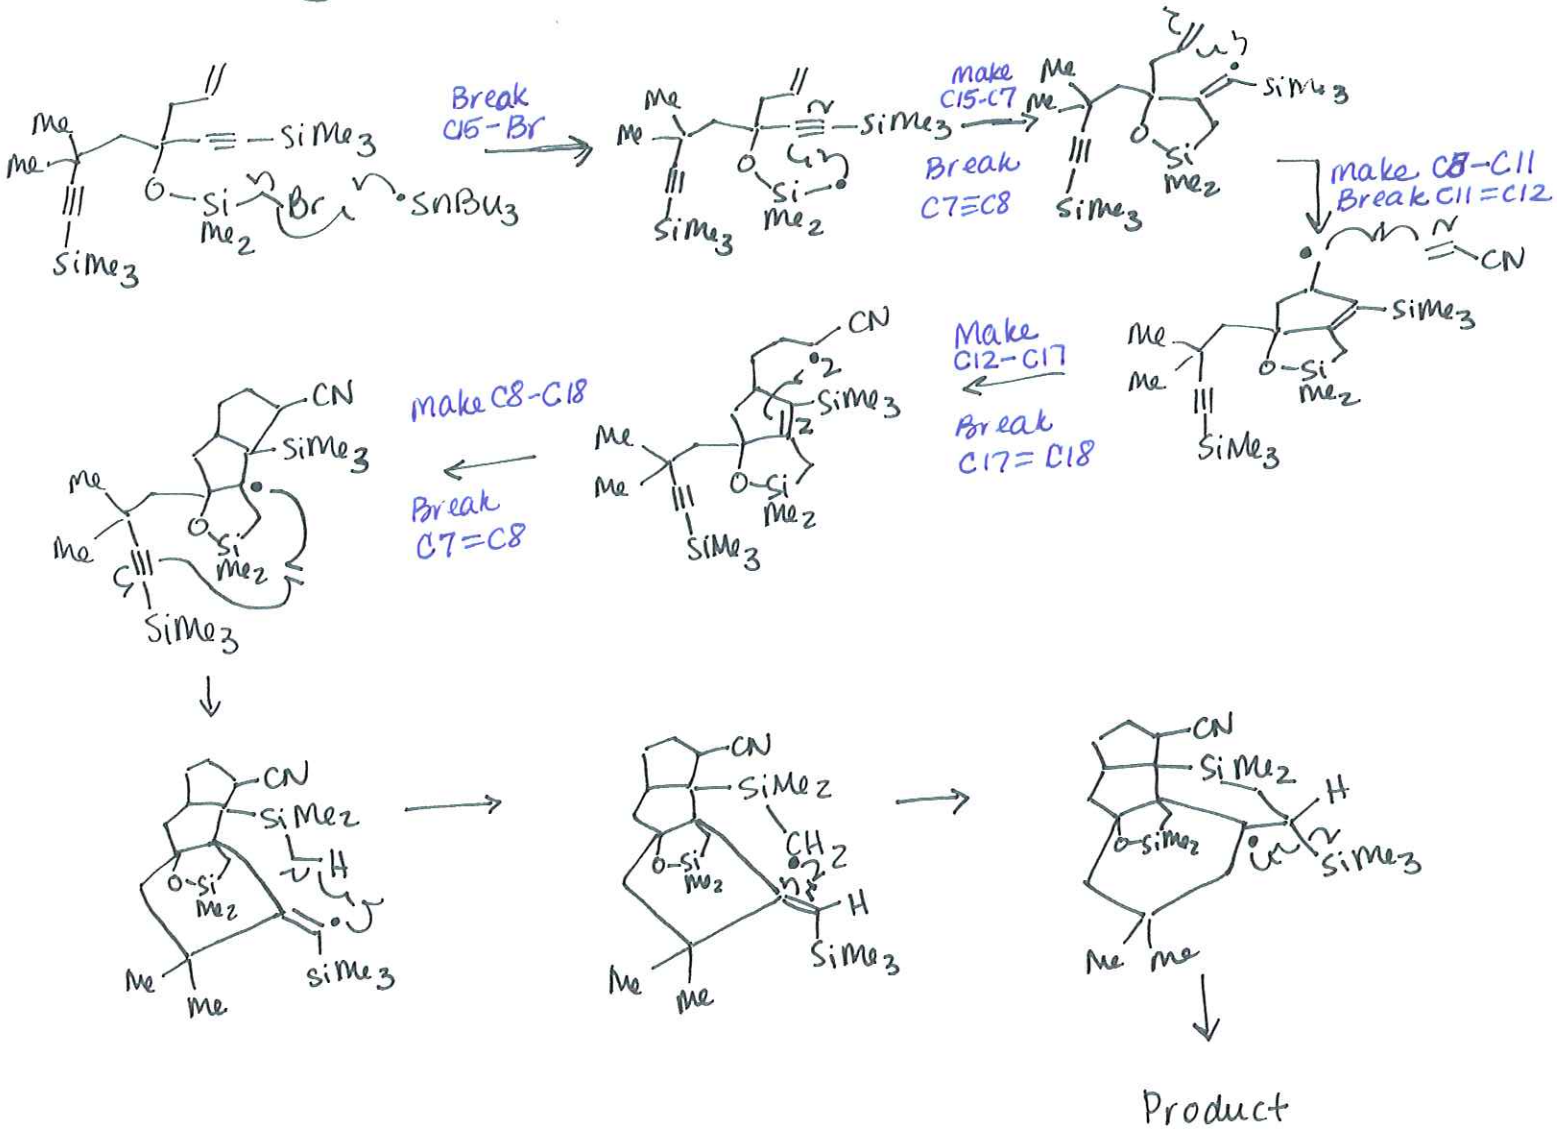 Me
Me
SiMe3
O
Si
Me2
Br
•SnBu3
SiMe3
Break
C15-Br
Me
Me
SiMe3
O
Si
Me2
SiMe3
Make
C15-C7
Break
C7≡C8
Me
Me
SiMe3
O
Si
Me2
SiMe3
Make C8-C11
Break C11=C12
CN
SiMe3
Me
Me
O
Si
Me2
SiMe3
Make
C12-C17
Break
C17=C18
CN
SiMe3
Me
Me
O
Si
Me2
SiMe3
Make C8-C18
Break
C7=C8
CN
SiMe3
Me
Me
O
Si
Me2
SiMe3
CN
SiMe2
H
O-Si
Me2
SiMe3
Me
Me
CN
SiMe2
CH2
O-Si
Me2
H
SiMe3
Me
Me
CN
SiMe2
H
O-SiMe2
SiMe3
Me
Me
Product